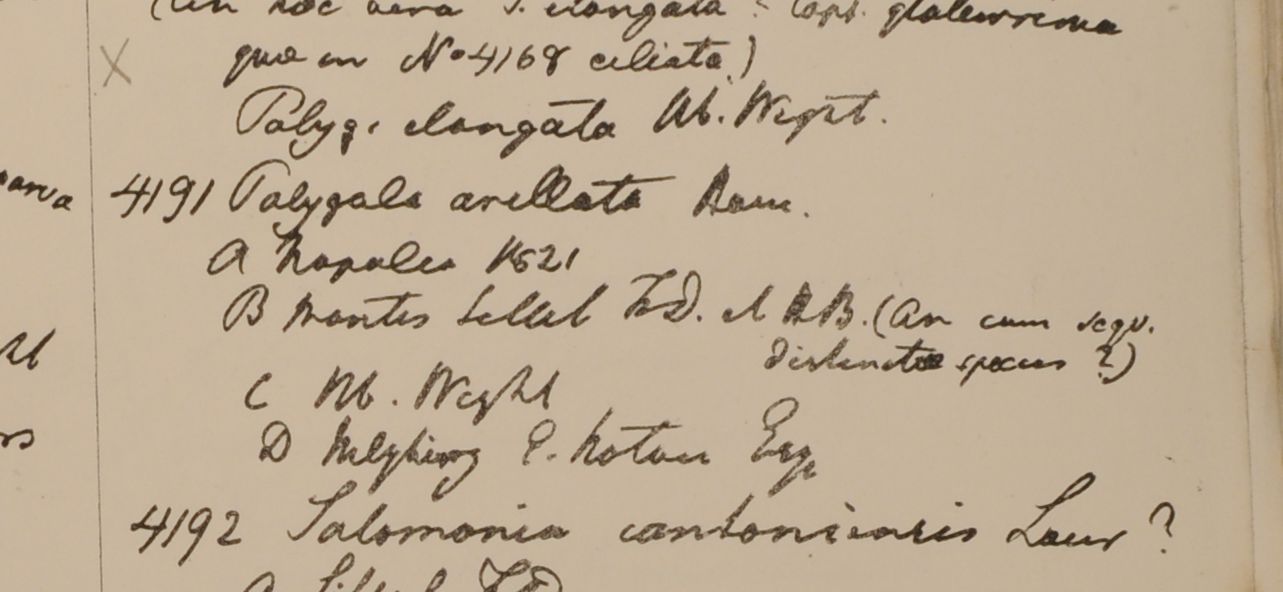 (An hoc vera P. elongata? Caps. glaberrima
quæ in No 4168 ciliata)
Polyg. elongata Hb. Wight.
arva
4191 Polygala arillata Ham.
A Napalia 1821
B Montes Sillet F.D. et HBB. (An cum sequ.
distinctæ species?)
C Hb. Wight
D Nilghirry E. Noton Esq
4192 Salomonia cantoniensis Lour?
A Sillet FD